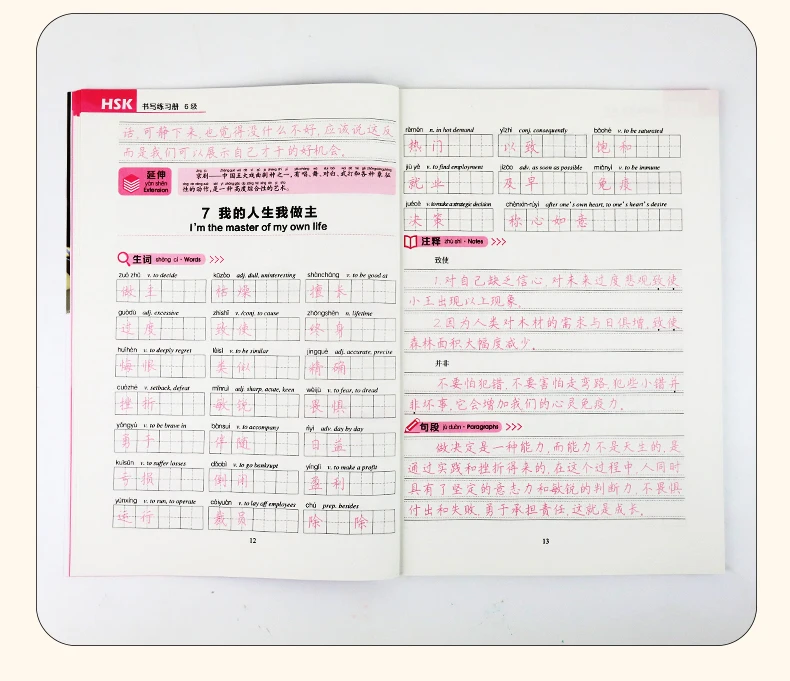 HSK 书写练习册 6 级
话,可静下来,也觉得没什么不好,应该说这反
而是我们可以展示自己才干的好机会。
延伸
yán shēn
Extension
京剧——中国五大戏曲剧种之一,有唱、舞、对白、武打和各种象征
性的动作,是一种高度综合性的艺术。
7 我的人生我做主
I'm the master of my own life
生词 shēng cí · Words
zuò zhǔ v. to decide kūzào adj. dull, uninteresting shàncháng v. to be good at
做主 枯燥 擅长
guòdù adj. excessive zhìshǐ v. /conj. to cause zhōngshēn n. lifetime
过度 致使 终身
huǐhèn v. to deeply regret lèisì v. to be similar jīngquè adj. accurate, precise
悔恨 类似 精确
cuòzhé v. setback, defeat mǐnruì adj. sharp, acute, keen wèijù v. to fear, to dread
挫折 敏锐 畏惧
yǒngyú v. to be brave in bànsuí v. to accompany rìyì adv. day by day
勇于 伴随 日益
kuīsǔn v. to suffer losses dǎobì v. to go bankrupt yínglì v. to make a profit
亏损 倒闭 盈利
yùnxíng v. to run, to operate cáiyuán v. to lay off employees chú prep. besides
运行 裁员 除 除
12
rèmén n. in hot demand yǐzhì conj. consequently bǎohé v. to be saturated
热门 以致 饱和
jiù yè v. to find employment jízǎo adv. as soon as possible miǎnyì v. to be immune
就业 及早 免疫
juécè v. to make a strategic decision chènxīn-rúyì after one's own heart, to one's heart's desire
决策 称心如意
注释 zhù shì · Notes
致使
1.对自己缺乏信心,对未来过度悲观,致使
小王出现以上现象。
2.因为人类对木材的需求与日俱增,致使
森林面积大幅度减少。
并非
不要怕犯错,不要害怕走弯路,犯些小错并
非坏事,它会增加我们的心灵免疫力。
句段 jù duàn · Paragraphs
做决定是一种能力,而能力不是天生的,是
通过实践和挫折得来的,在这个过程中,人同时
具有了坚定的意志力和敏锐的判断力,不畏惧
付出和失败,勇于承担责任,这就是成长。
13